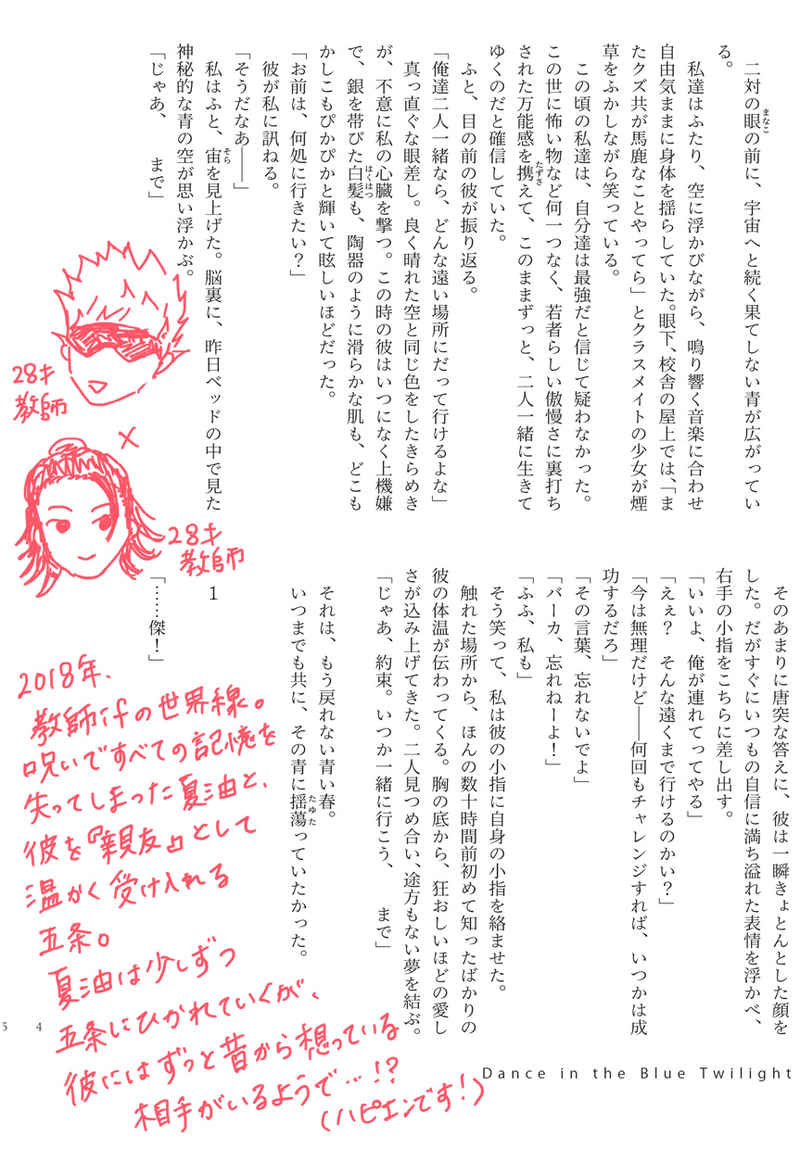 二対の眼の前に、宇宙へと続く果てしない青が広がってい
る。
私達はふたり、空に浮かびながら、鳴り響く音楽に合わせ
自由気ままに身体を揺らしていた。眼下、校舎の屋上では、「ま
たクズ共が馬鹿なことやってら」とクラスメイトの少女が煙
草をふかしながら笑っている。
この頃の私達は、自分達は最強だと信じて疑わなかった。
この世に怖い物など何一つなく、若者らしい傲慢さに裏打ち
された万能感を携えて、このままずっと、二人一緒に生きて
ゆくのだと確信していた。
ふと、目の前の彼が振り返る。
「俺達二人一緒なら、どんな遠い場所にだって行けるよな」
真っ直ぐな眼差し。良く晴れた空と同じ色をしたきらめき
が、不意に私の心臓を撃つ。この時の彼はいつになく上機嫌
で、銀を帯びた白髪も、陶器のように滑らかな肌も、どこも
かしこもぴかぴかと輝いて眩しいほどだった。
「お前は、何処に行きたい?」
彼が私に訊ねる。
「そうだなあ――」
私はふと、宙を見上げた。脳裏に、昨日ベッドの中で見た
神秘的な青の空が思い浮かぶ。
「じゃあ、　　まで」
そのあまりに唐突な答えに、彼は一瞬きょとんとした顔を
した。だがすぐにいつもの自信に満ち溢れた表情を浮かべ、
右手の小指をこちらに差し出す。
「いいよ、俺が連れてってやる」
「えぇ?　そんな遠くまで行けるのかい?」
「今は無理だけど――何回もチャレンジすれば、いつかは成
功するだろ」
「その言葉、忘れないでよ」
「バーカ、忘れねーよ!」
「ふふ、私も」
そう笑って、私は彼の小指に自身の小指を絡ませた。
触れた場所から、ほんの数十時間前初めて知ったばかりの
彼の体温が伝わってくる。胸の底から、狂おしいほどの愛し
さが込み上げてきた。二人見つめ合い、途方もない夢を結ぶ。
「じゃあ、約束。いつか一緒に行こう、　　まで」
それは、もう戻れない青い春。
いつまでも共に、その青に揺蕩っていたかった。
1
「……傑!」
28才
教師
×
28才
教師
2018年、
教師ifの世界線。
呪いですべての記憶を
失ってしまった夏油と、
彼を『親友』として
温かく受け入れる
五条。
夏油は少しずつ
五条にひかれていくが、
彼にはずっと昔から想っている
相手がいるようで…!?
(ハピエンです!)
5 4
Dance in the Blue Twilight